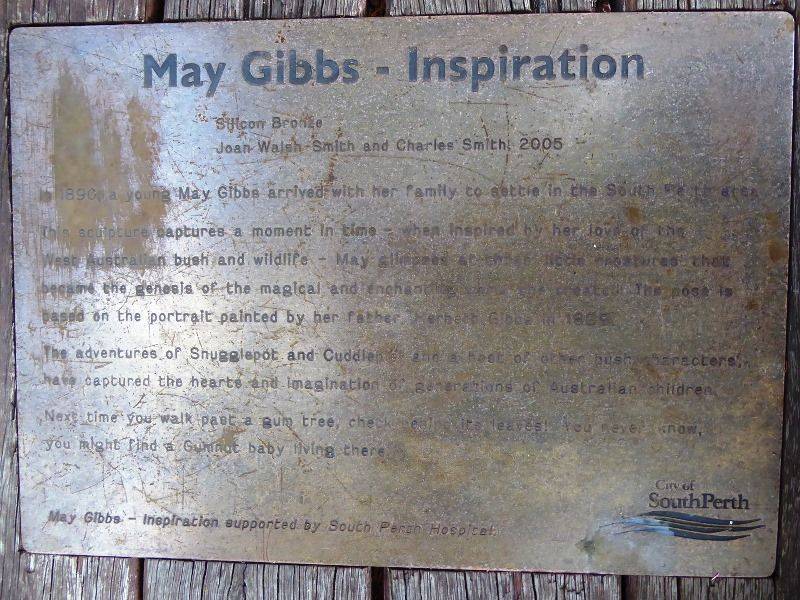 May Gibbs - Inspiration
Silicon Bronze
Joan Walsh-Smith and Charles Smith, 2005
In 1890, a young May Gibbs arrived with her family to settle in the South Perth area
This sculpture captures a moment in time - when inspired by her love of the
West Australian bush and wildlife - May glimpses at three little creatures that
became the genesis of the magical and enchanting she created. The pose is
based on the portrait painted by her father Herbert Gibbs in
The adventures of Snugglepot and Cuddlepie and a host of other bush characters,
have captured the hearts and imagination of generations of Australian children.
Next time you walk past a gum tree, check behind its leaves! You never know,
you might find a Gumnut baby living there
May Gibbs - Inspiration supported by South Perth Hospital.
City of
SouthPerth